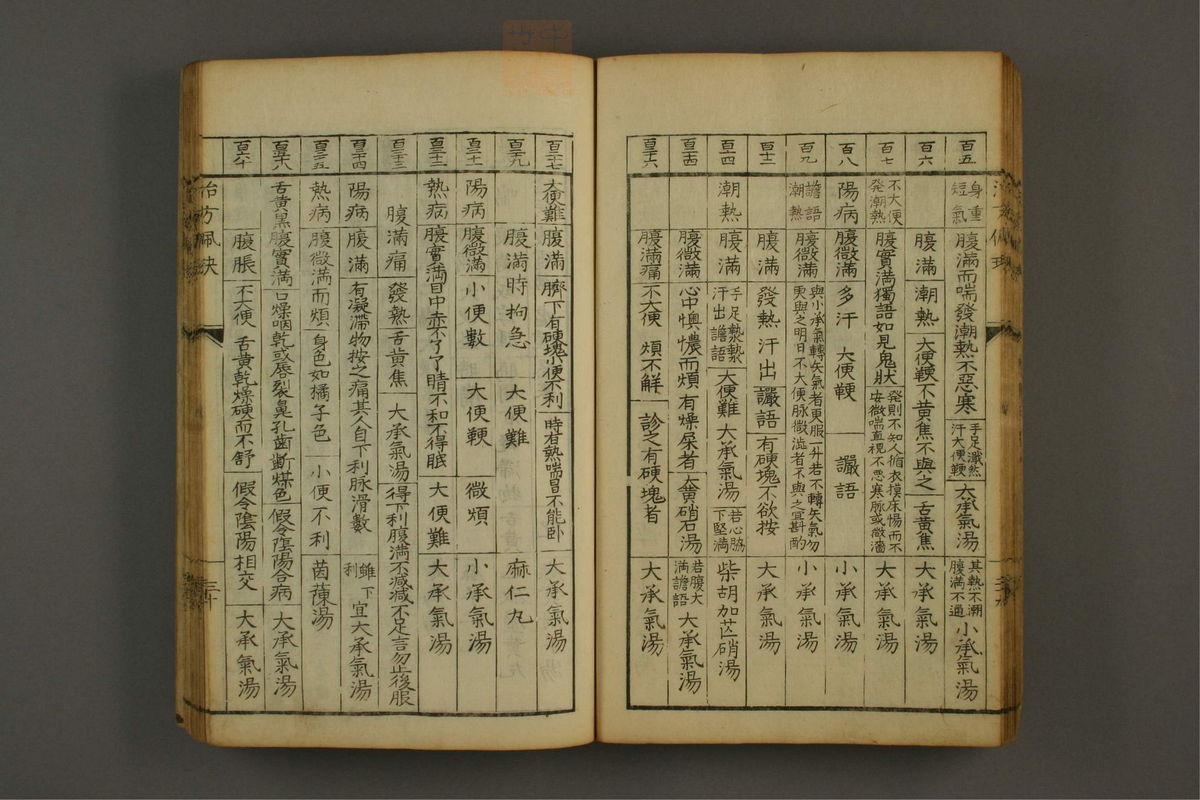 百五 身重短氣 腹滿而喘發潮熱不惡寒 手足濈然汗大便鞕 大承氣湯 其熱不潮腹滿不通 小承氣湯
百六 腹滿 潮熱 大便鞕不黃焦不與之 舌黃焦 大承氣湯
百七 不大便発潮熱 腹實滿獨語如見鬼狀 発則不知人循衣摸床惕而不安微喘直視不悪寒脉或微濇 大承氣湯
百八 陽病 腹微滿 多汗 大便鞕 讝語 小承氣湯
百九 譫語潮熱 腹微滿 與小承氣轉矢氣者更服一升若不轉矢氣勿更與之明日不大便脉微澁者不與之宜斟酌 小承氣湯
腹滿 發熱汗出讝語 有硬塊不欲按 大承氣湯
潮熱 腹滿 手足漐漐汗出譫語 大便難 大承氣湯 若心脇下堅滿 柴胡加芒硝湯
腹微滿 心中懊憹而煩 有燥屎者 大黃硝石湯 若腹大滿譫語 大承氣湯
腹滿痛 不大便 煩不解 診之有硬塊者 大承氣湯
大便難 腹滿 臍下有硬塊小便不利 時有熱喘冒不能卧 大承氣湯
腹滿時拘急 大便難 麻仁丸
陽病 腹微滿 小便數 大便鞕 微煩 小承氣湯
熱病 腹實滿 目中赤不了了睛不和不得眠 大便難 大承氣湯
腹滿痛 發熱舌黄焦 大承氣湯 得下利腹滿不減減不足言勿止後服
陽病 腹滿 有凝滯物按之痛其人自下利脉滑數 雖下利 宜大承氣湯
熱病 腹微滿而煩 身色如橘子色 小便不利 茵蔯湯
舌黃黒 腹實滿 口燥咽乾或唇裂鼻孔齒齗煤色 假令陰陽合病 大承氣湯
腹脹 不大便 舌黄乾燥硬而不舒 假令陰陽相交 大承氣湯